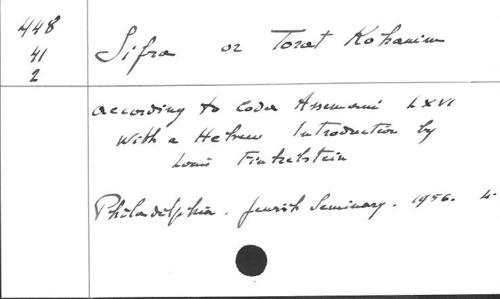 448
41
2
Sifra or Torat Kohanim
according to Codex Assemani LXVI
with a Hebrew Introduction by
Louis Finkelstein
Philadelphia. Jewish Seminary. 1956. 4.